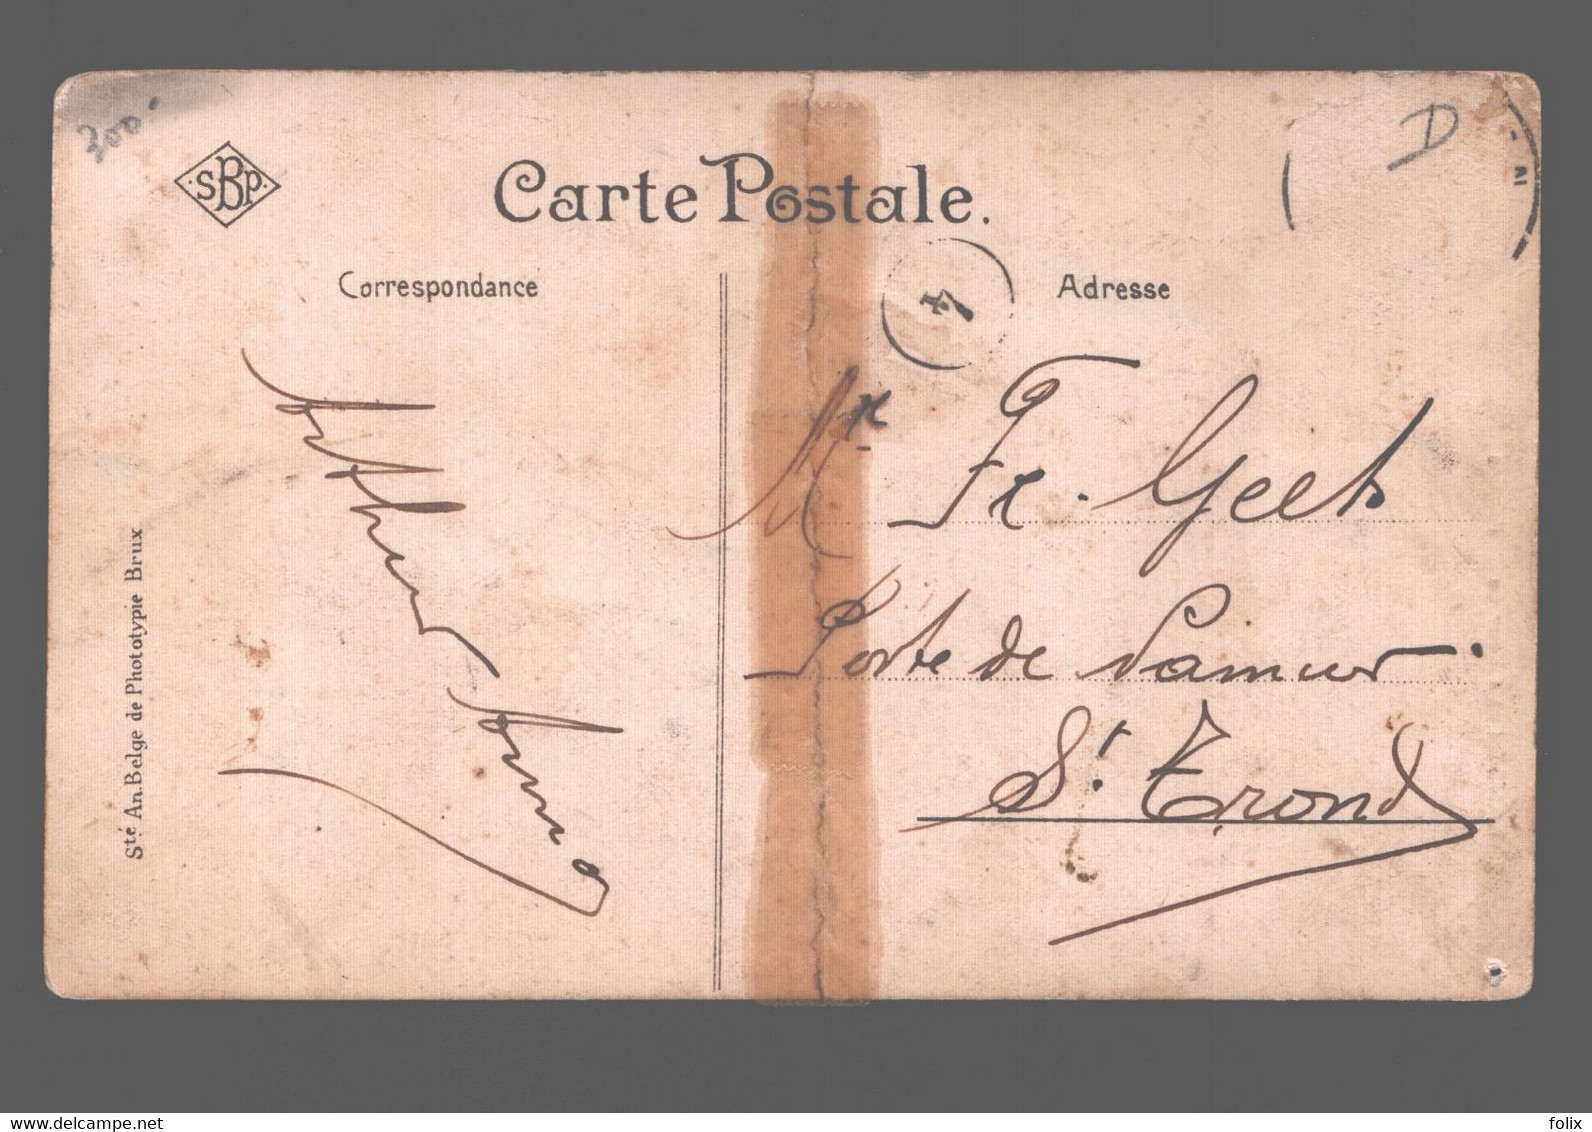 300
SBP
Carte Postale.
D
Correspondance
Adresse
4
Mr Fr. Geets
Porte de Namur.
St. Trond
Sté An. Belge de Phototypie Brux
www.delcampe.net
folix